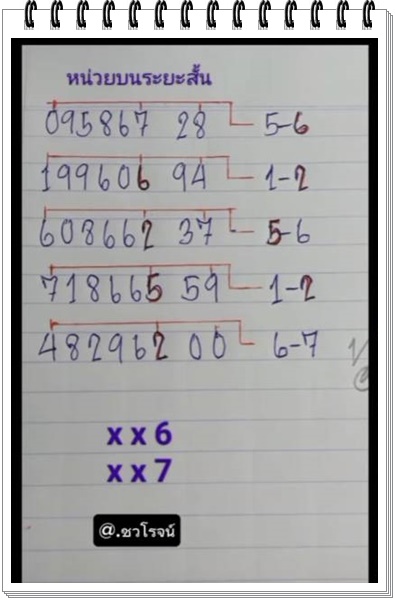 หน่วยบนระยะสั้น
095867 28 5-6
199606 94 1-2
608662 37 5-6
718665 59 1-2
482962 00 6-7
x x 6
x x 7
@.ชวโรจน์